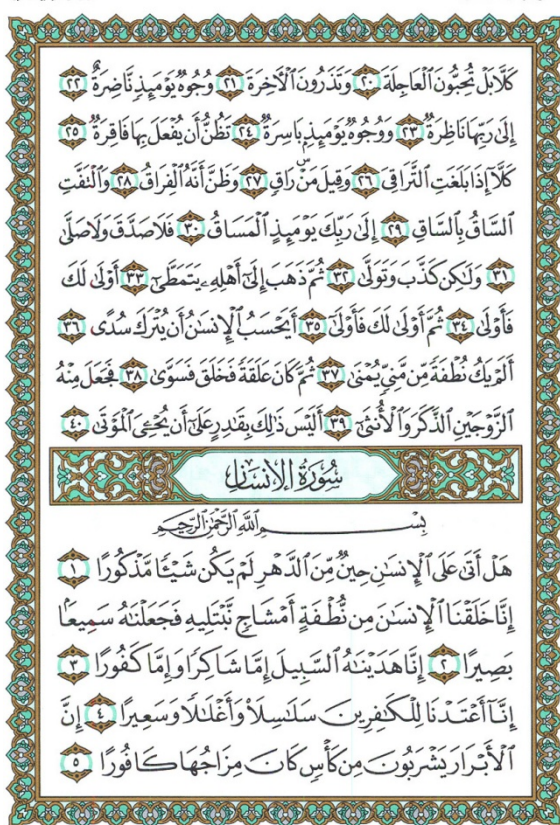 كَلَّا بَلْ تُحِبُّونَ ٱلْعَاجِلَةَ ٢٠ وَتَذَرُونَ ٱلْآخِرَةَ ٢١ وُجُوهٌ يَوْمَئِذٍ نَّاضِرَةٌ ٢٢
إِلَىٰ رَبِّهَا نَاظِرَةٌ ٢٣ وَوُجُوهٌ يَوْمَئِذٍۭ بَاسِرَةٌ ٢٤ تَظُنُّ أَن يُفْعَلَ بِهَا فَاقِرَةٌ ٢٥
كَلَّآ إِذَا بَلَغَتِ ٱلتَّرَاقِىَ ٢٦ وَقِيلَ مَنْ ۜ رَاقٍ ٢٧ وَظَنَّ أَنَّهُ ٱلْفِرَاقُ ٢٨ وَٱلْتَفَّتِ
ٱلسَّاقُ بِٱلسَّاقِ ٢٩ إِلَىٰ رَبِّكَ يَوْمَئِذٍ ٱلْمَسَاقُ ٣٠ فَلَا صَدَّقَ وَلَا صَلَّىٰ
٣١ وَلَٰكِن كَذَّبَ وَتَوَلَّىٰ ٣٢ ثُمَّ ذَهَبَ إِلَىٰٓ أَهْلِهِۦ يَتَمَطَّىٰٓ ٣٣ أَوْلَىٰ لَكَ
فَأَوْلَىٰ ٣٤ ثُمَّ أَوْلَىٰ لَكَ فَأَوْلَىٰٓ ٣٥ أَيَحْسَبُ ٱلْإِنسَٰنُ أَن يُتْرَكَ سُدًى ٣٦
أَلَمْ يَكُ نُطْفَةً مِّن مَّنِىٍّ يُمْنَىٰ ٣٧ ثُمَّ كَانَ عَلَقَةً فَخَلَقَ فَسَوَّىٰ ٣٨ فَجَعَلَ مِنْهُ
ٱلزَّوْجَيْنِ ٱلذَّكَرَ وَٱلْأُنثَىٰٓ ٣٩ أَلَيْسَ ذَٰلِكَ بِقَٰدِرٍ عَلَىٰٓ أَن يُحْۦِىَ ٱلْمَوْتَىٰ ٤٠
سُورَةُ الإِنسَانِ
بِسْمِ ٱللَّهِ ٱلرَّحْمَٰنِ ٱلرَّحِيمِ
هَلْ أَتَىٰ عَلَى ٱلْإِنسَٰنِ حِينٌ مِّنَ ٱلدَّهْرِ لَمْ يَكُن شَيْـًٔا مَّذْكُورًا ١
إِنَّا خَلَقْنَا ٱلْإِنسَٰنَ مِن نُّطْفَةٍ أَمْشَاجٍ نَّبْتَلِيهِ فَجَعَلْنَٰهُ سَمِيعًۢا
بَصِيرًا ٢ إِنَّا هَدَيْنَٰهُ ٱلسَّبِيلَ إِمَّا شَاكِرًا وَإِمَّا كَفُورًا ٣
إِنَّآ أَعْتَدْنَا لِلْكَٰفِرِينَ سَلَٰسِلَا۟ وَأَغْلَٰلًا وَسَعِيرًا ٤ إِنَّ
ٱلْأَبْرَارَ يَشْرَبُونَ مِن كَأْسٍ كَانَ مِزَاجُهَا كَافُورًا ٥